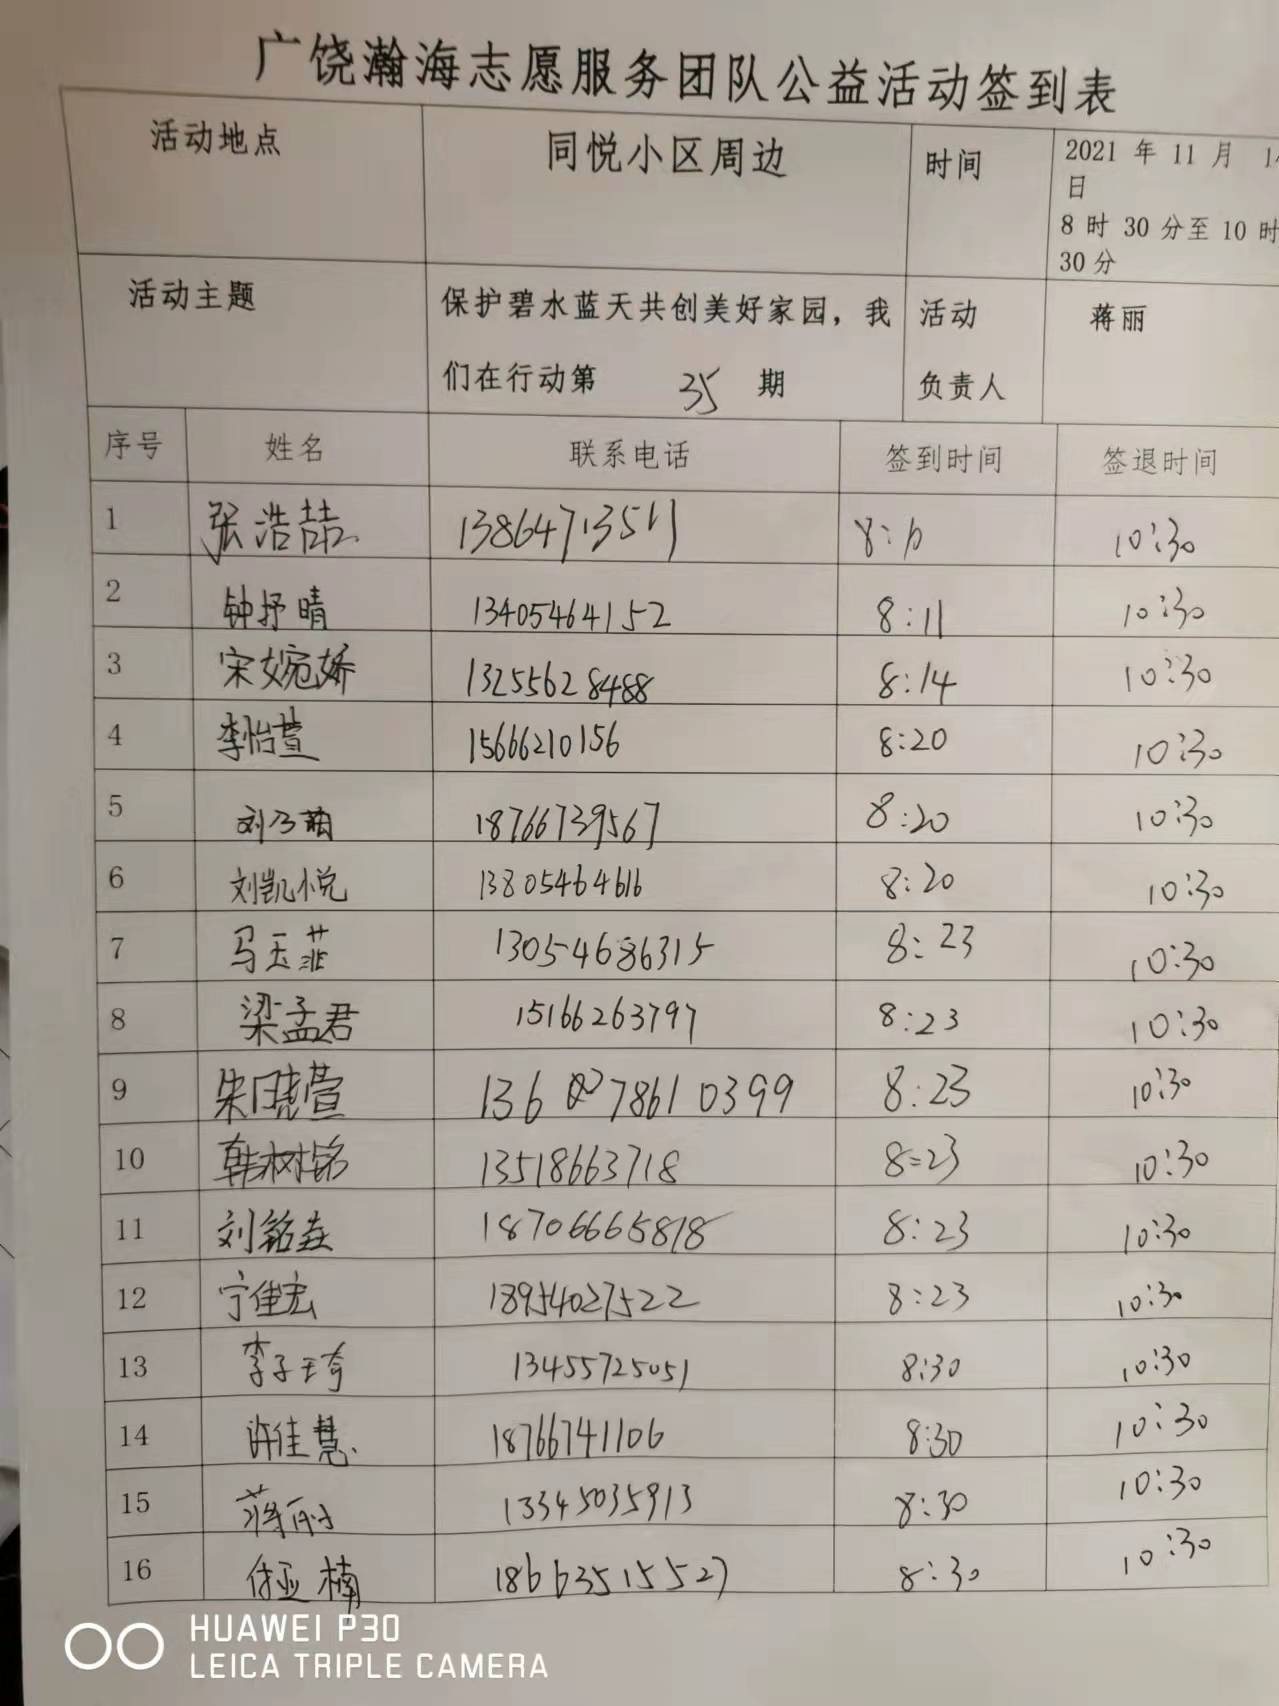 广饶瀚海志愿服务团队公益活动签到表
活动地点 同悦小区周边 时间 2021 年 11 月
日
8 时 30 分至 10 时
30 分
活动主题 保护碧水蓝天共创美好家园，我 活动 蒋丽
们在行动第 35 期 负责人
序号 姓名 联系电话 签到时间 签退时间
1 张浩喆 13864713511 8:10 10:30
2 钟抒晴 13405464152 8:11 10:30
3 宋婉娇 13255628488 8:14 10:30
4 李怡萱 15666210156 8:20 10:30
5 刘乃 18766739567 8:20 10:30
6 刘凯悦 13805464616 8:20 10:30
7 马玉菲 13054686315 8:23 10:30
8 梁孟君 15166263797 8:23 10:30
9 朱萱 136 7861 0399 8:23 10:30
10 韩树铭 13518663718 8=23 10:30
11 刘铭垚 18706665818 8:23 10:30
12 宁佳宏 18954027522 8:23 10:30
13 李子琦 13455725051 8:30 10:30
14 许佳慧 18766741106 8:30 10:30
15 蒋丽 13345035913 8:30 10:30
16 亚楠 18663515527 8:30 10:30
HUAWEI P30
LEICA TRIPLE CAMERA